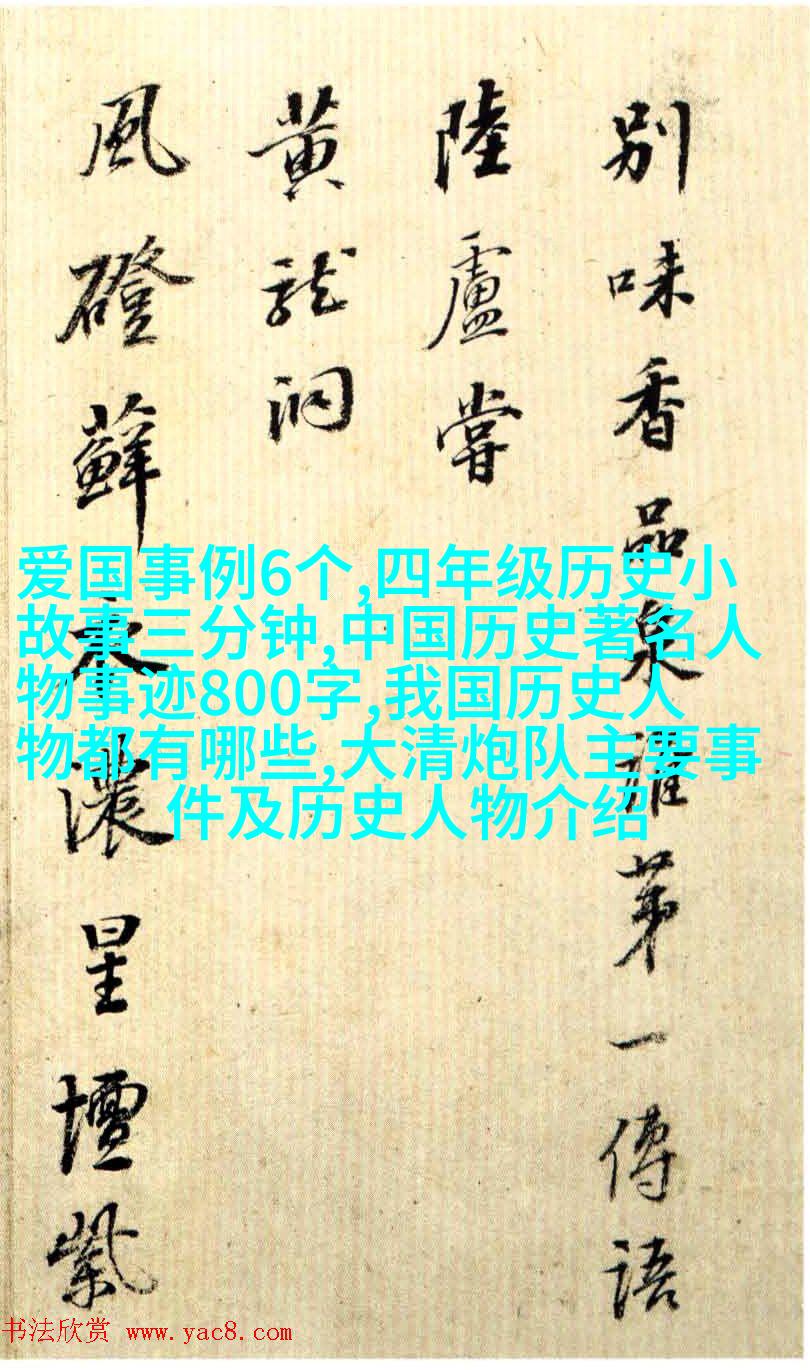 別味香品泉誰苐一傳語
陸盧嘗
黄龍洞
風磴蘚衣濃星壇紫
爱国事例6个,四年级历史小
故事三分钟,中国历史著名人
物事迹800字,我国历史人
物都有哪些,大清炮队主要事
件及历史人物介绍
书法欣赏 www.yac8.com